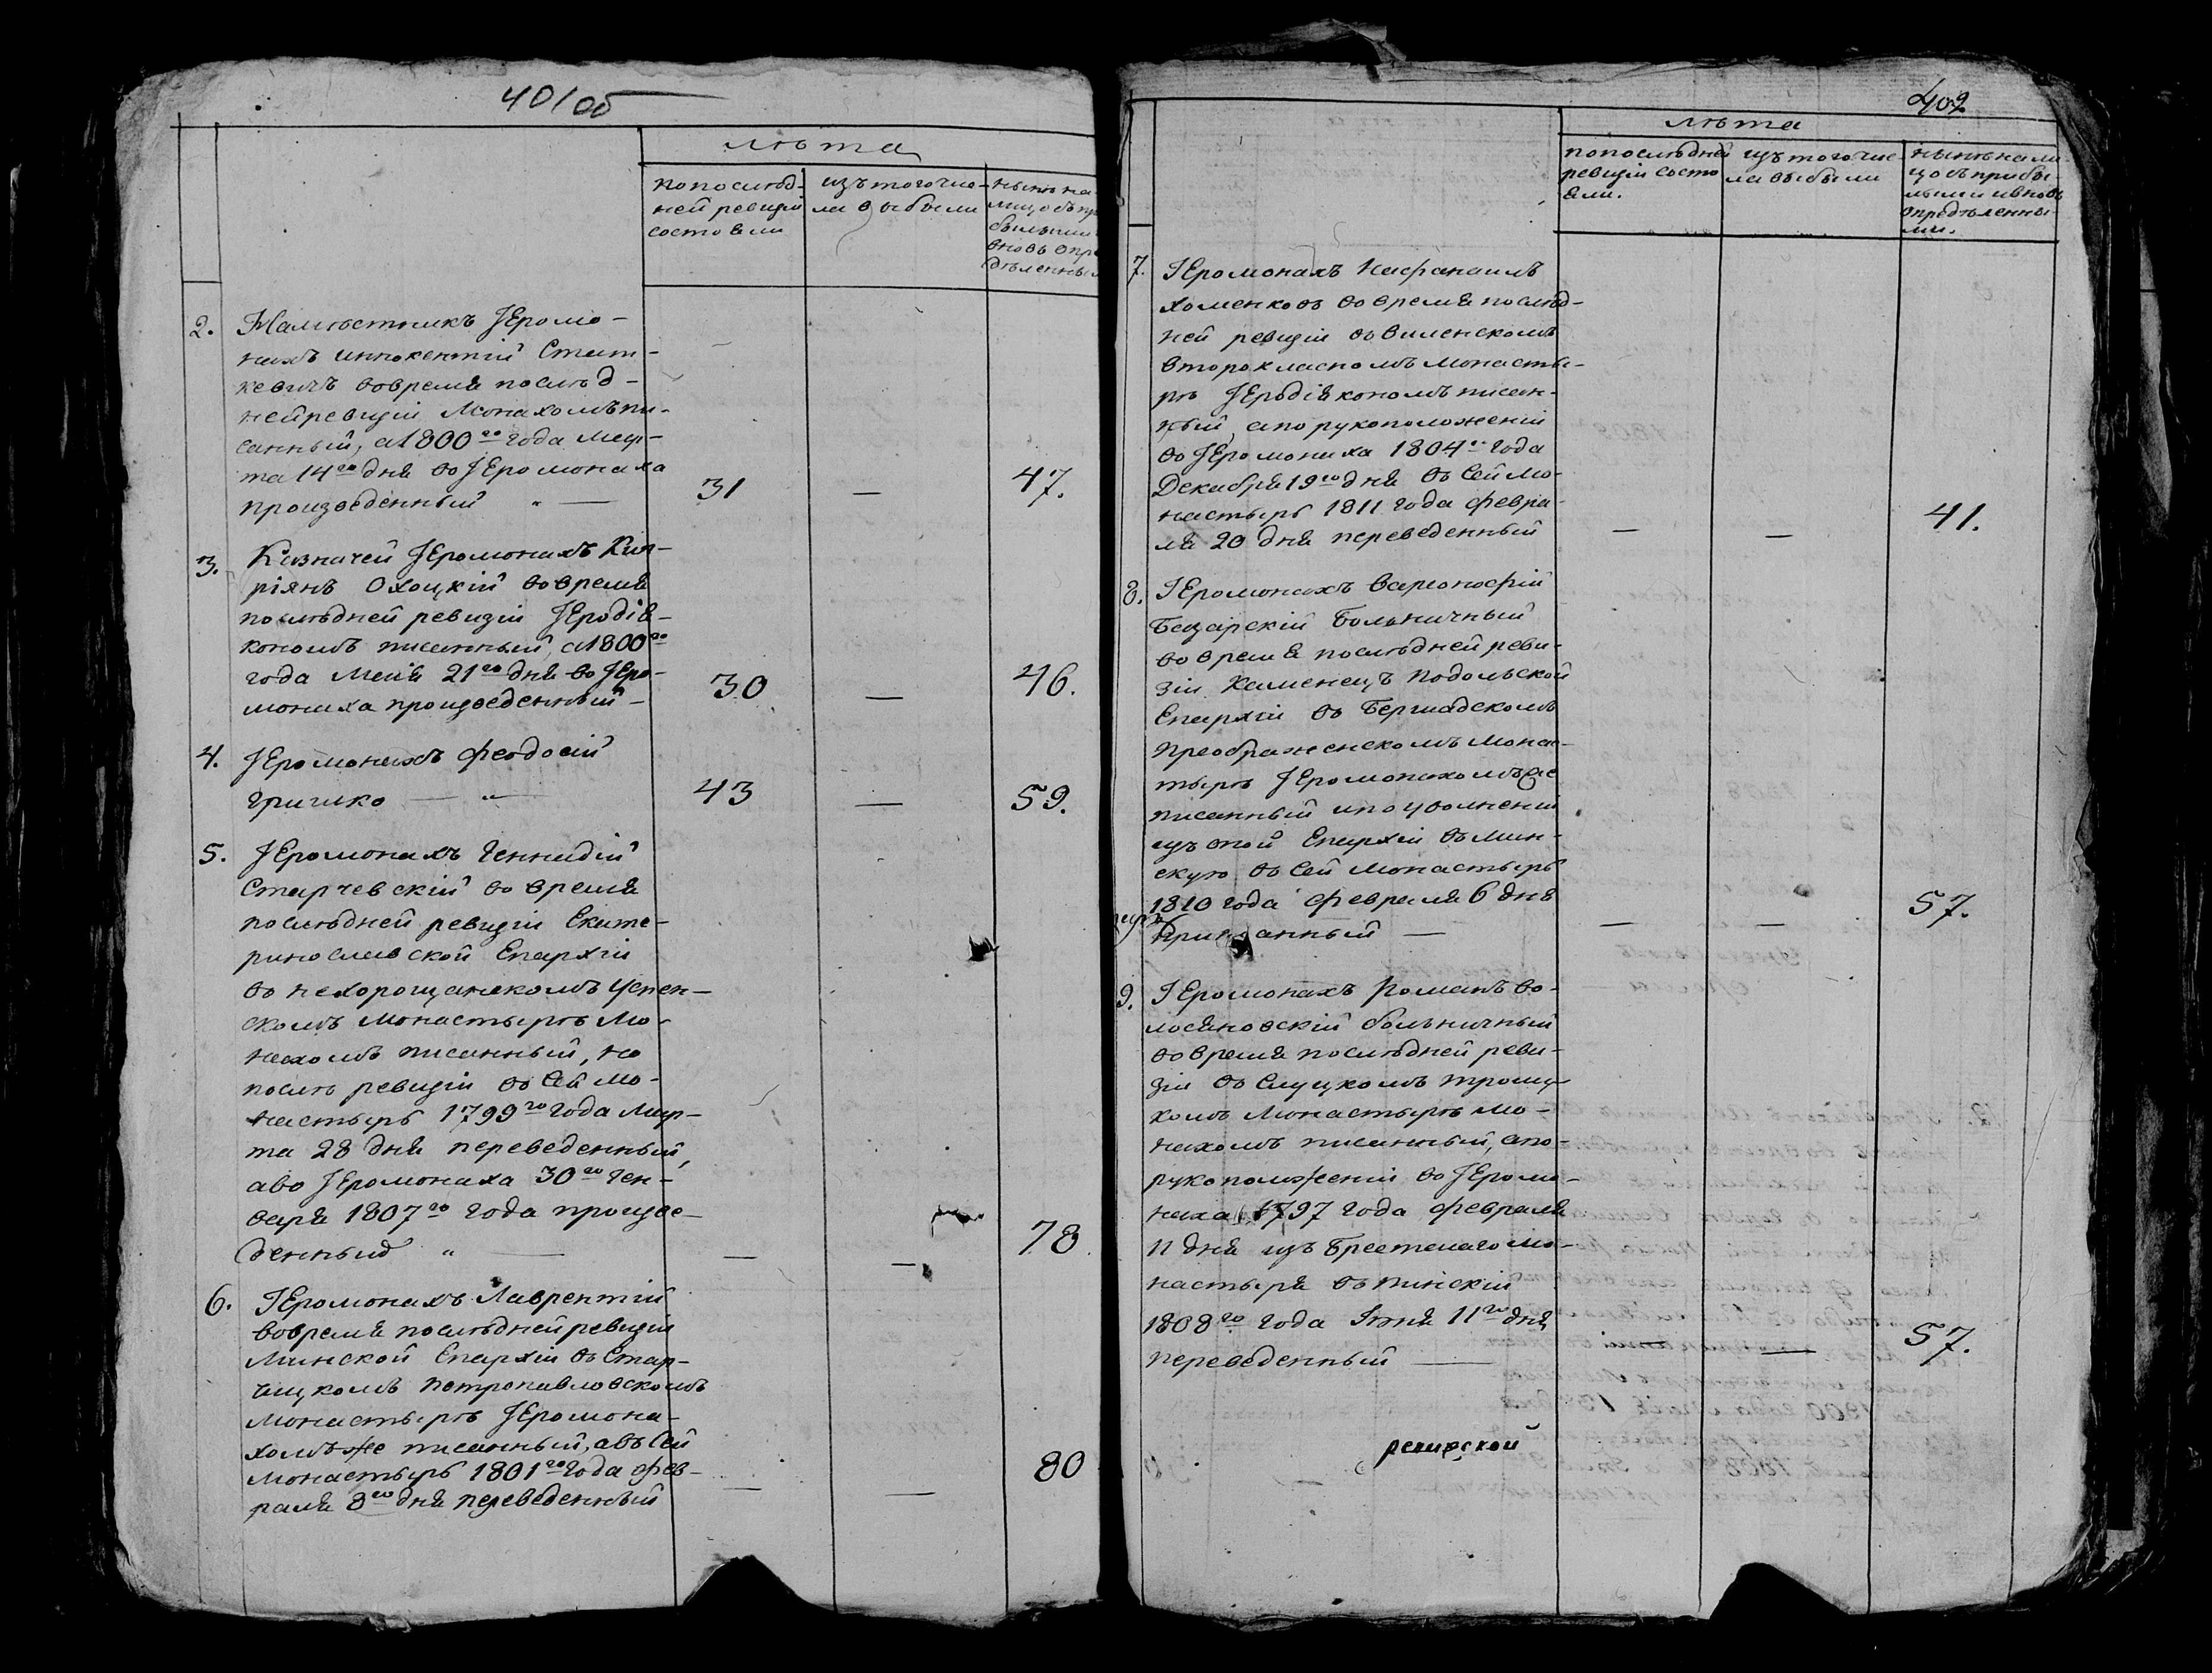 401об
лѣта
попослѣд-
ней ревизіи
состояли
изътогочис-
ла выбыли
нынѣ на
лицо съпр
былыми
вновь опре
дѣленным
2. Намѣстникъ Іеромо-
нахъ Иннокентій Стат-
кевичъ вовремя послѣд-
нейревизіи Монахомъпи-
санный, а1800го года Мар-
та 14го дня во Іеромонаха
произведенный " — 31 — 47.
3. Казначей Іеромонахъ Кип-
ріянъ Охоцкій вовремя
послѣдней ревизіи Іеродія-
кономъ писанный, а1800го
года Маія 21го дня во Іеро-
монаха произведенный — 30 — 46.
4. Іеромонахъ Феодосій
Гришко — " — 43 — 59.
5. Іеромонахъ Геннадій
Старчевскій во время
послѣдней ревизіи Екате-
ринославской Епархіи
въ Нехорощанскомъ Успен-
скомъ Монастырѣ Мо-
нахомъ писанный, но
послѣ ревизіи въ Сей Мо-
настырь 1799го года Мар-
та 28 дня переведенный,
аво Іеромонаха 30го Ген-
варя 1807го года произве-
денный " — — — 78
6. Іеромонахъ Лаврентій
вовремя послѣдней ревизіи
Минской Епархіи въ Стар-
чицкомъ Петропавловскомъ
Монастырѣ Іеромона-
хомъже писанный, авъ Сей
Монастырь 1801го года Фев-
раля 8го дня переведенный — — 80
402
лѣта
попослѣдней
ревизіи состо
яли.
изътогочис-
ла выбыли
нынѣ нали-
цо съприбы-
лыми ивновь
опредѣленны-
ми.
7. Іеромонахъ Нафанаилъ
Хоменковъ вовремя послѣд-
ней ревизіи въ Виленскомъ
второкласномъ Монасты-
рѣ Іеродіякономъ писан-
ный, апо рукоположеніи
во Іеромонаха 1804го года
Декабря 19го дня въ Сей Мо-
настырь 1811 года Февра-
ля 20 дня переведенный — — 41.
8. Іеромонахъ Варсонофій
Бацарскій Больничный
вовремя послѣдней реви-
зіи Каменецъ Подольской
Епархіи въ Бершадскомъ
Преображенскомъ Монас-
тырѣ Іеромонахомъже
писанный ипо уволненіи
изъ оной Епархіи въ Мин-
скую въ Сей Монастырь
1810 года Февраля 6 дня
— — — 57.
9. Іеромонахъ Романъ Во-
лосяновскій больничный
вовремя послѣдней реви-
зіи въ Слуцкомъ Троиц-
комъ Монастырѣ Мо-
нахомъ писанный, апо-
рукоположеніи во Іеромо-
наха 1797 года Февраля
11 дня изъ Брестскаго Мо-
настыря въ Пинскій
1808го года Іюня 11го дня
переведенный — — — 57.